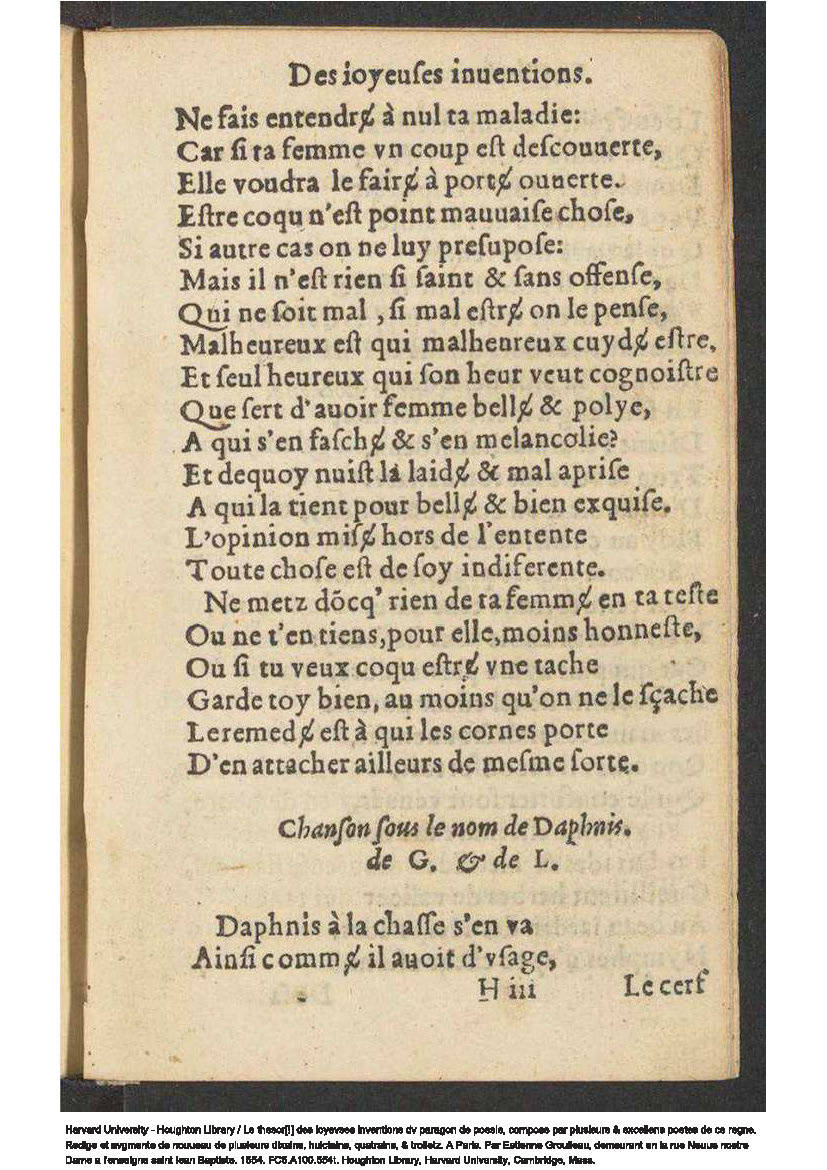 Des ioyeuſes inuentions.
Ne fais entendrɇ à nul ta maladie:
Car ſi ta femme vn coup eſt deſcouuerte,
Elle voudra le fairɇ à portɇ ouuerte.
Eſtre coqu n'eſt point mauuaiſe choſe,
Si autre cas on ne luy preſupoſe:
Mais il n'eſt rien ſi ſaint & ſans offenſe,
Qui ne ſoit mal , ſi mal eſtrɇ on le penſe,
Malheureux eſt qui malheureux cuydɇ eſtre,
Et ſeul heureux qui ſon heur veut cognoiſtre
Que ſert d'auoir femme bellɇ & polye,
A qui s'en faſchɇ & s'en melancolie?
Et dequoy nuiſt la laidɇ & mal apriſe
A qui la tient pour bellɇ & bien exquiſe.
L'opinion miſɇ hors de l'entente
Toute choſe eſt de ſoy indiferente.
Ne metz dõcq' rien de ta femmɇ en ta teſte
Ou ne t'en tiens,pour elle,moins honneſte,
Ou ſi tu veux coqu eſtrɇ vne tache
Garde toy bien, au moins qu'on ne le ſçache
Le remedɇ eſt à qui les cornes porte
D'en attacher ailleurs de meſme ſorte.
Chanſon ſous le nom de Daphnis.
de G. & de L.
Daphnis à la chaſſe s'en va
Ainſi commɇ il auoit d'vſage,
H iii Le cerf
Harvard University - Houghton Library / Le thesor[!] des ioyevses inventions dv paragon de poesie, compose par plusieurs & excellens poetes de ce regne.
Redige et avgmente de nouueau de plusieurs dixains, huictains, quatrains, & trolletz. A Paris. Par Estienne Groulleau, demeurant en la rue Neuue nostre
Dame a l'enseigne saint Iean Baptiste. 1554. FC5.A100.554t. Houghton Library, Harvard University, Cambridge, Mass.